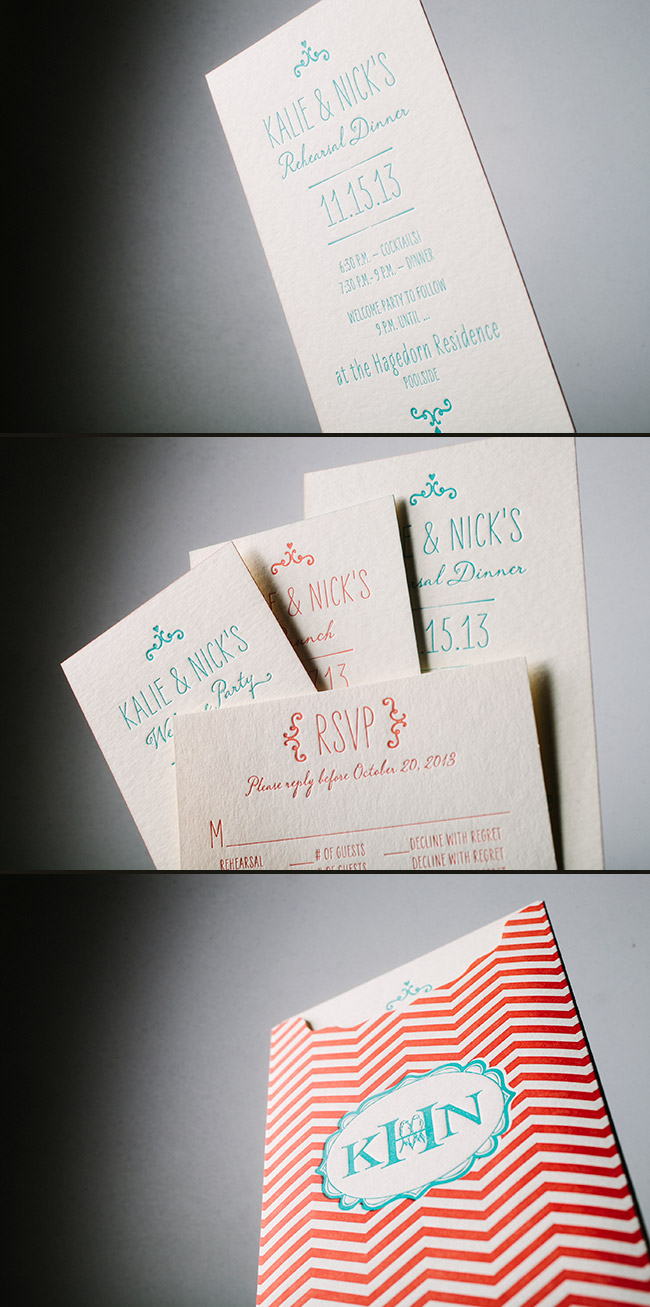 KALIE & NICK'S
Rehearsal Dinner
11.15.13
6:30 P.M. – COCKTAILS!
7:30 P.M.- 9 P.M. – DINNER
WELCOME PARTY TO FOLLOW
9 P.M. UNTIL ...
at the Hagedorn Residence
POOLSIDE
& NICK'S
Dinner
.15.13
& NICK'S
13
KALIE & NICK'S
Party
RSVP
Please reply before October 20, 2013
M
REHEARSAL ____# OF GUESTS ____DECLINE WITH REGRET
# OF GUESTS DECLINE WITH REGRET
KHN